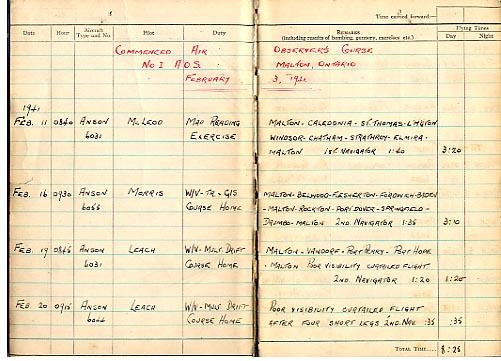 Time carried forward:—
Date Hour Aircraft Type and No. Pilot Duty Remarks (including results of bombing, gunnery, exercises, etc.) Flying Times Day Night
Commenced Air Observer's Course
No 1 A.O.S. Malton, Ontario
February 3, 1941
1941
Feb. 11 0840 Anson McLeod Map Reading Malton - Caledonia - St. Thomas -
6031 Exercise Windsor - Chatham - Strathroy - Elmira -
Malton 1st Navigator 1:40 3:20
Feb. 16 0930 Anson Morris W/V - Tr. - G/S Malton - Belwood - Flesherton - Fordwich -
Course Home - Malton - Rockton - Port Dover - Springfield -
Drumbo - Malton 2nd. Navigator 1:35 3:10
Feb. 19 0845 Anson Leach W/V - Mult. Drift Malton - Vandorf - Port Perry - Port Hope
6031 Course Home - Malton Poor visibility curtailed flight
2nd. Navigator 1:20 1:20
Feb. 20 0915 Anson Leach W/V - Mult. Drift Poor visibility curtailed flight
Course Home after four short legs 2nd. Nav. :35 :35
Total Time..... 8:25